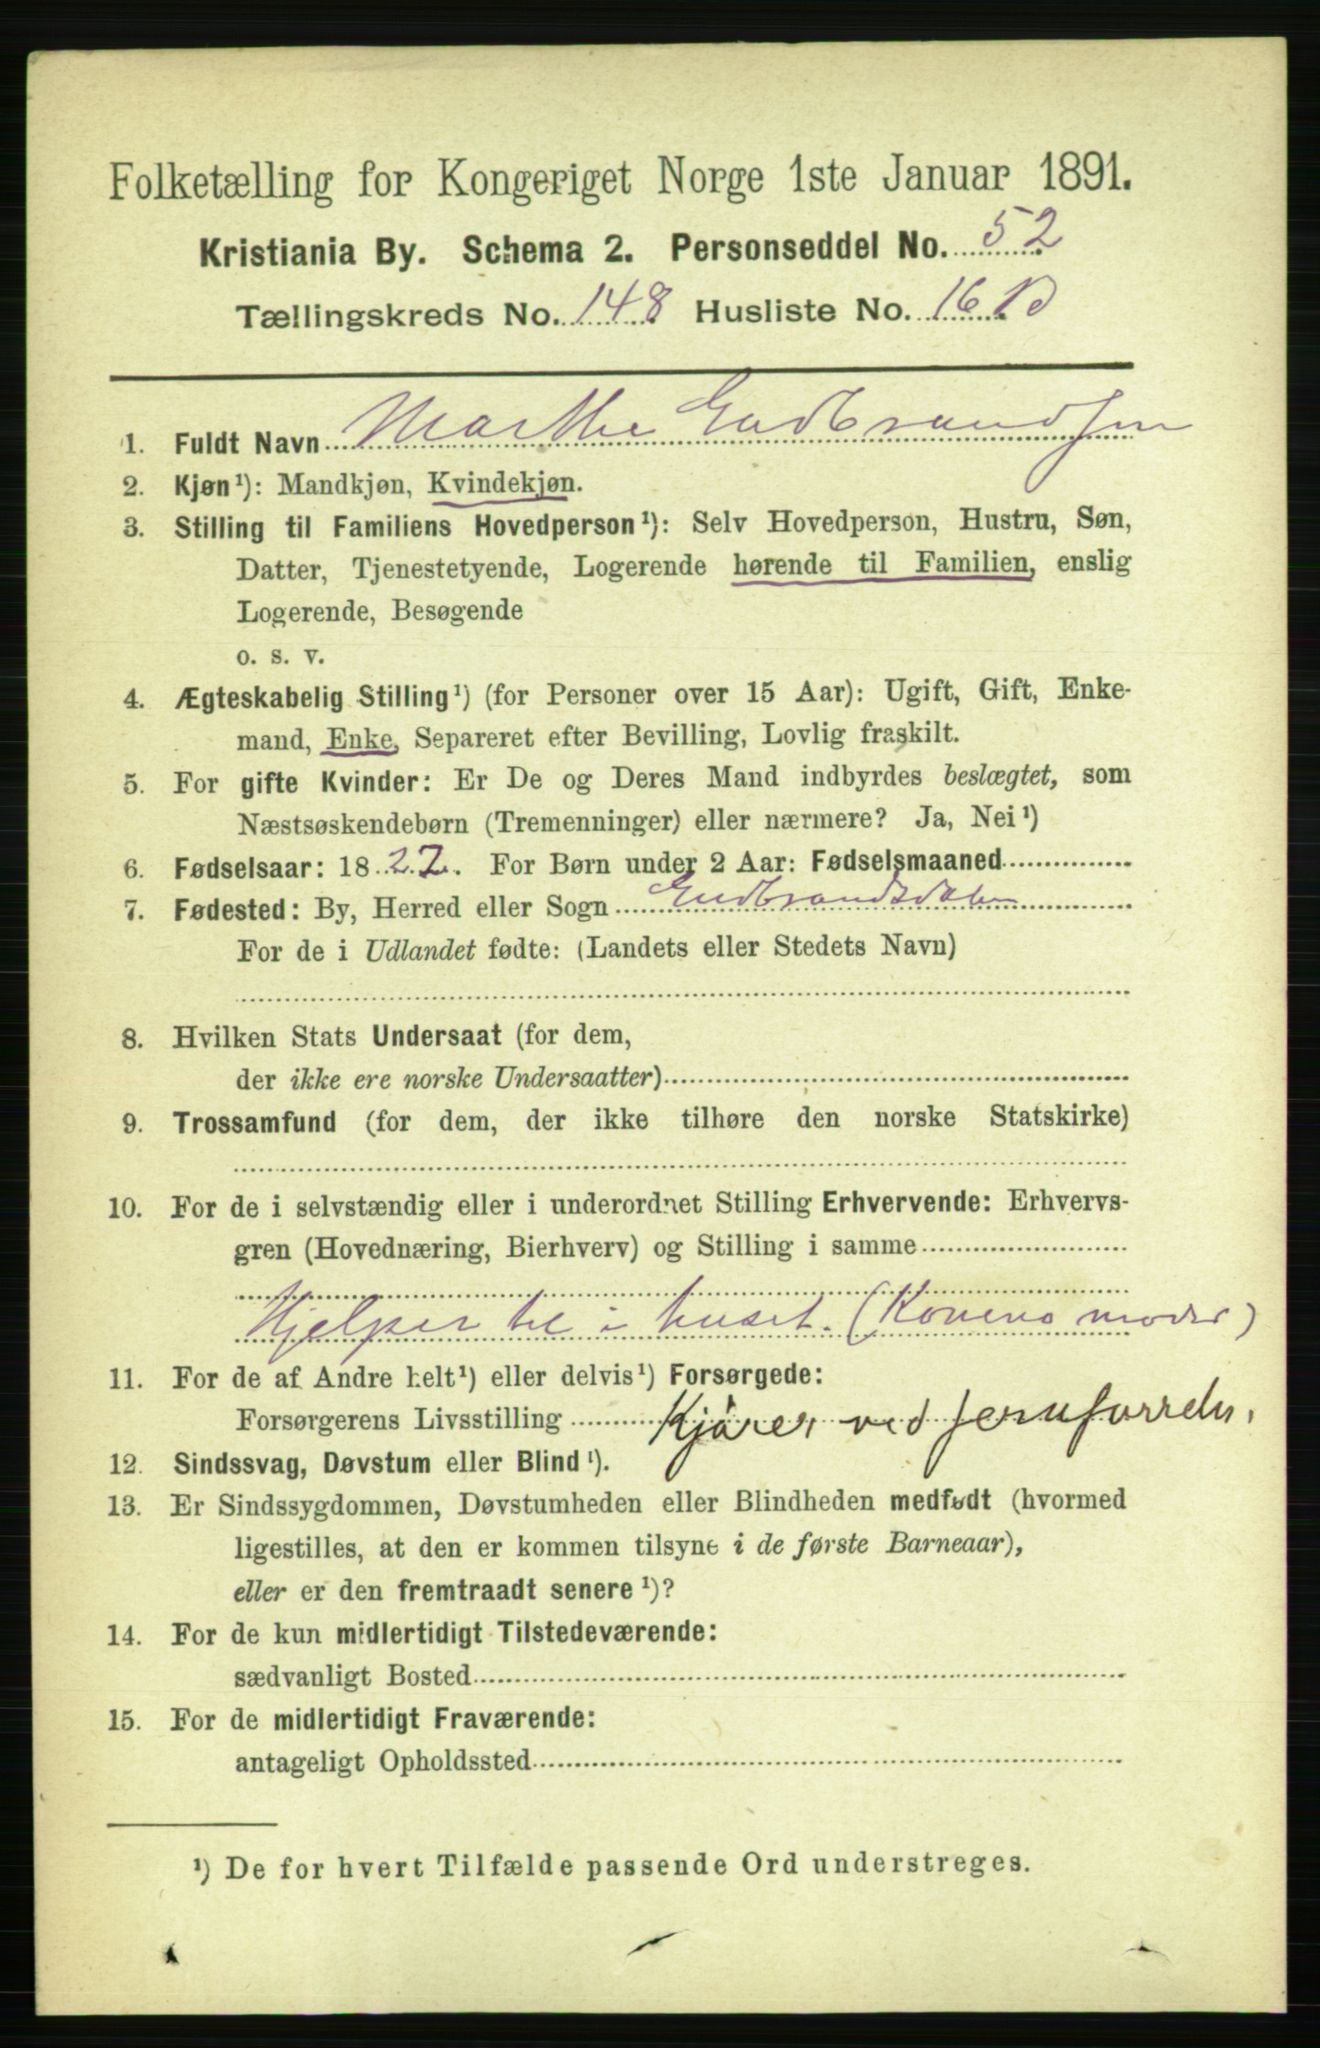 Folketælling for Kongeriget Norge 1ste Januar 1891.
Kristiania By. Schema 2. Personseddel No. 52
Tællingskreds No. 148 Husliste No. 16
1. Fuldt Navn Marthe Gudbrandsen
2. Kjøn¹): Mandkjøn, Kvindekjøn.
3. Stilling til Familiens Hovedperson¹): Selv Hovedperson, Hustru, Søn,
Datter, Tjenestetyende, Logerende hørende til Familien, enslig
Logerende, Besøgende
o. s. v.
4. Ægteskabelig Stilling¹) (for Personer over 15 Aar): Ugift, Gift, Enke-
mand, Enke, Separeret efter Bevilling, Lovlig fraskilt.
5. For gifte Kvinder: Er De og Deres Mand indbyrdes beslægtet, som
Næstsøskendebørn (Tremenninger) eller nærmere? Ja, Nei¹)
6. Fødselsaar: 1822. For Børn under 2 Aar: Fødselsmaaned
7. Fødested: By, Herred eller Sogn Gudbrandsdalen
For de i Udlandet fødte: (Landets eller Stedets Navn)
8. Hvilken Stats Undersaat (for dem,
der ikke ere norske Undersaatter)
9. Trossamfund (for dem, der ikke tilhøre den norske Statskirke)
10. For de i selvstændig eller i underordnet Stilling Erhvervende: Erhvervs-
gren (Hovednæring, Bierhverv) og Stilling i samme
Hjelper til i huset. (Konens moder)
11. For de af Andre helt¹) eller delvis¹) Forsørgede:
Forsørgerens Livsstilling Kjører ved
12. Sindssvag, Døvstum eller Blind¹).
13. Er Sindssygdommen, Døvstumheden eller Blindheden medfødt (hvormed
ligestilles, at den er kommen tilsyne i de første Barneaar),
eller er den fremtraadt senere¹)?
14. For de kun midlertidigt Tilstedeværende:
sædvanligt Bosted
15. For de midlertidigt Fraværende:
antageligt Opholdssted
¹) De for hvert Tilfælde passende Ord understreges.